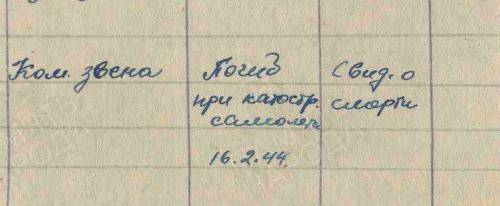 Ком. звена
Погиб
при катостр.
самолета
16.2.44.
Свид. о
смерти